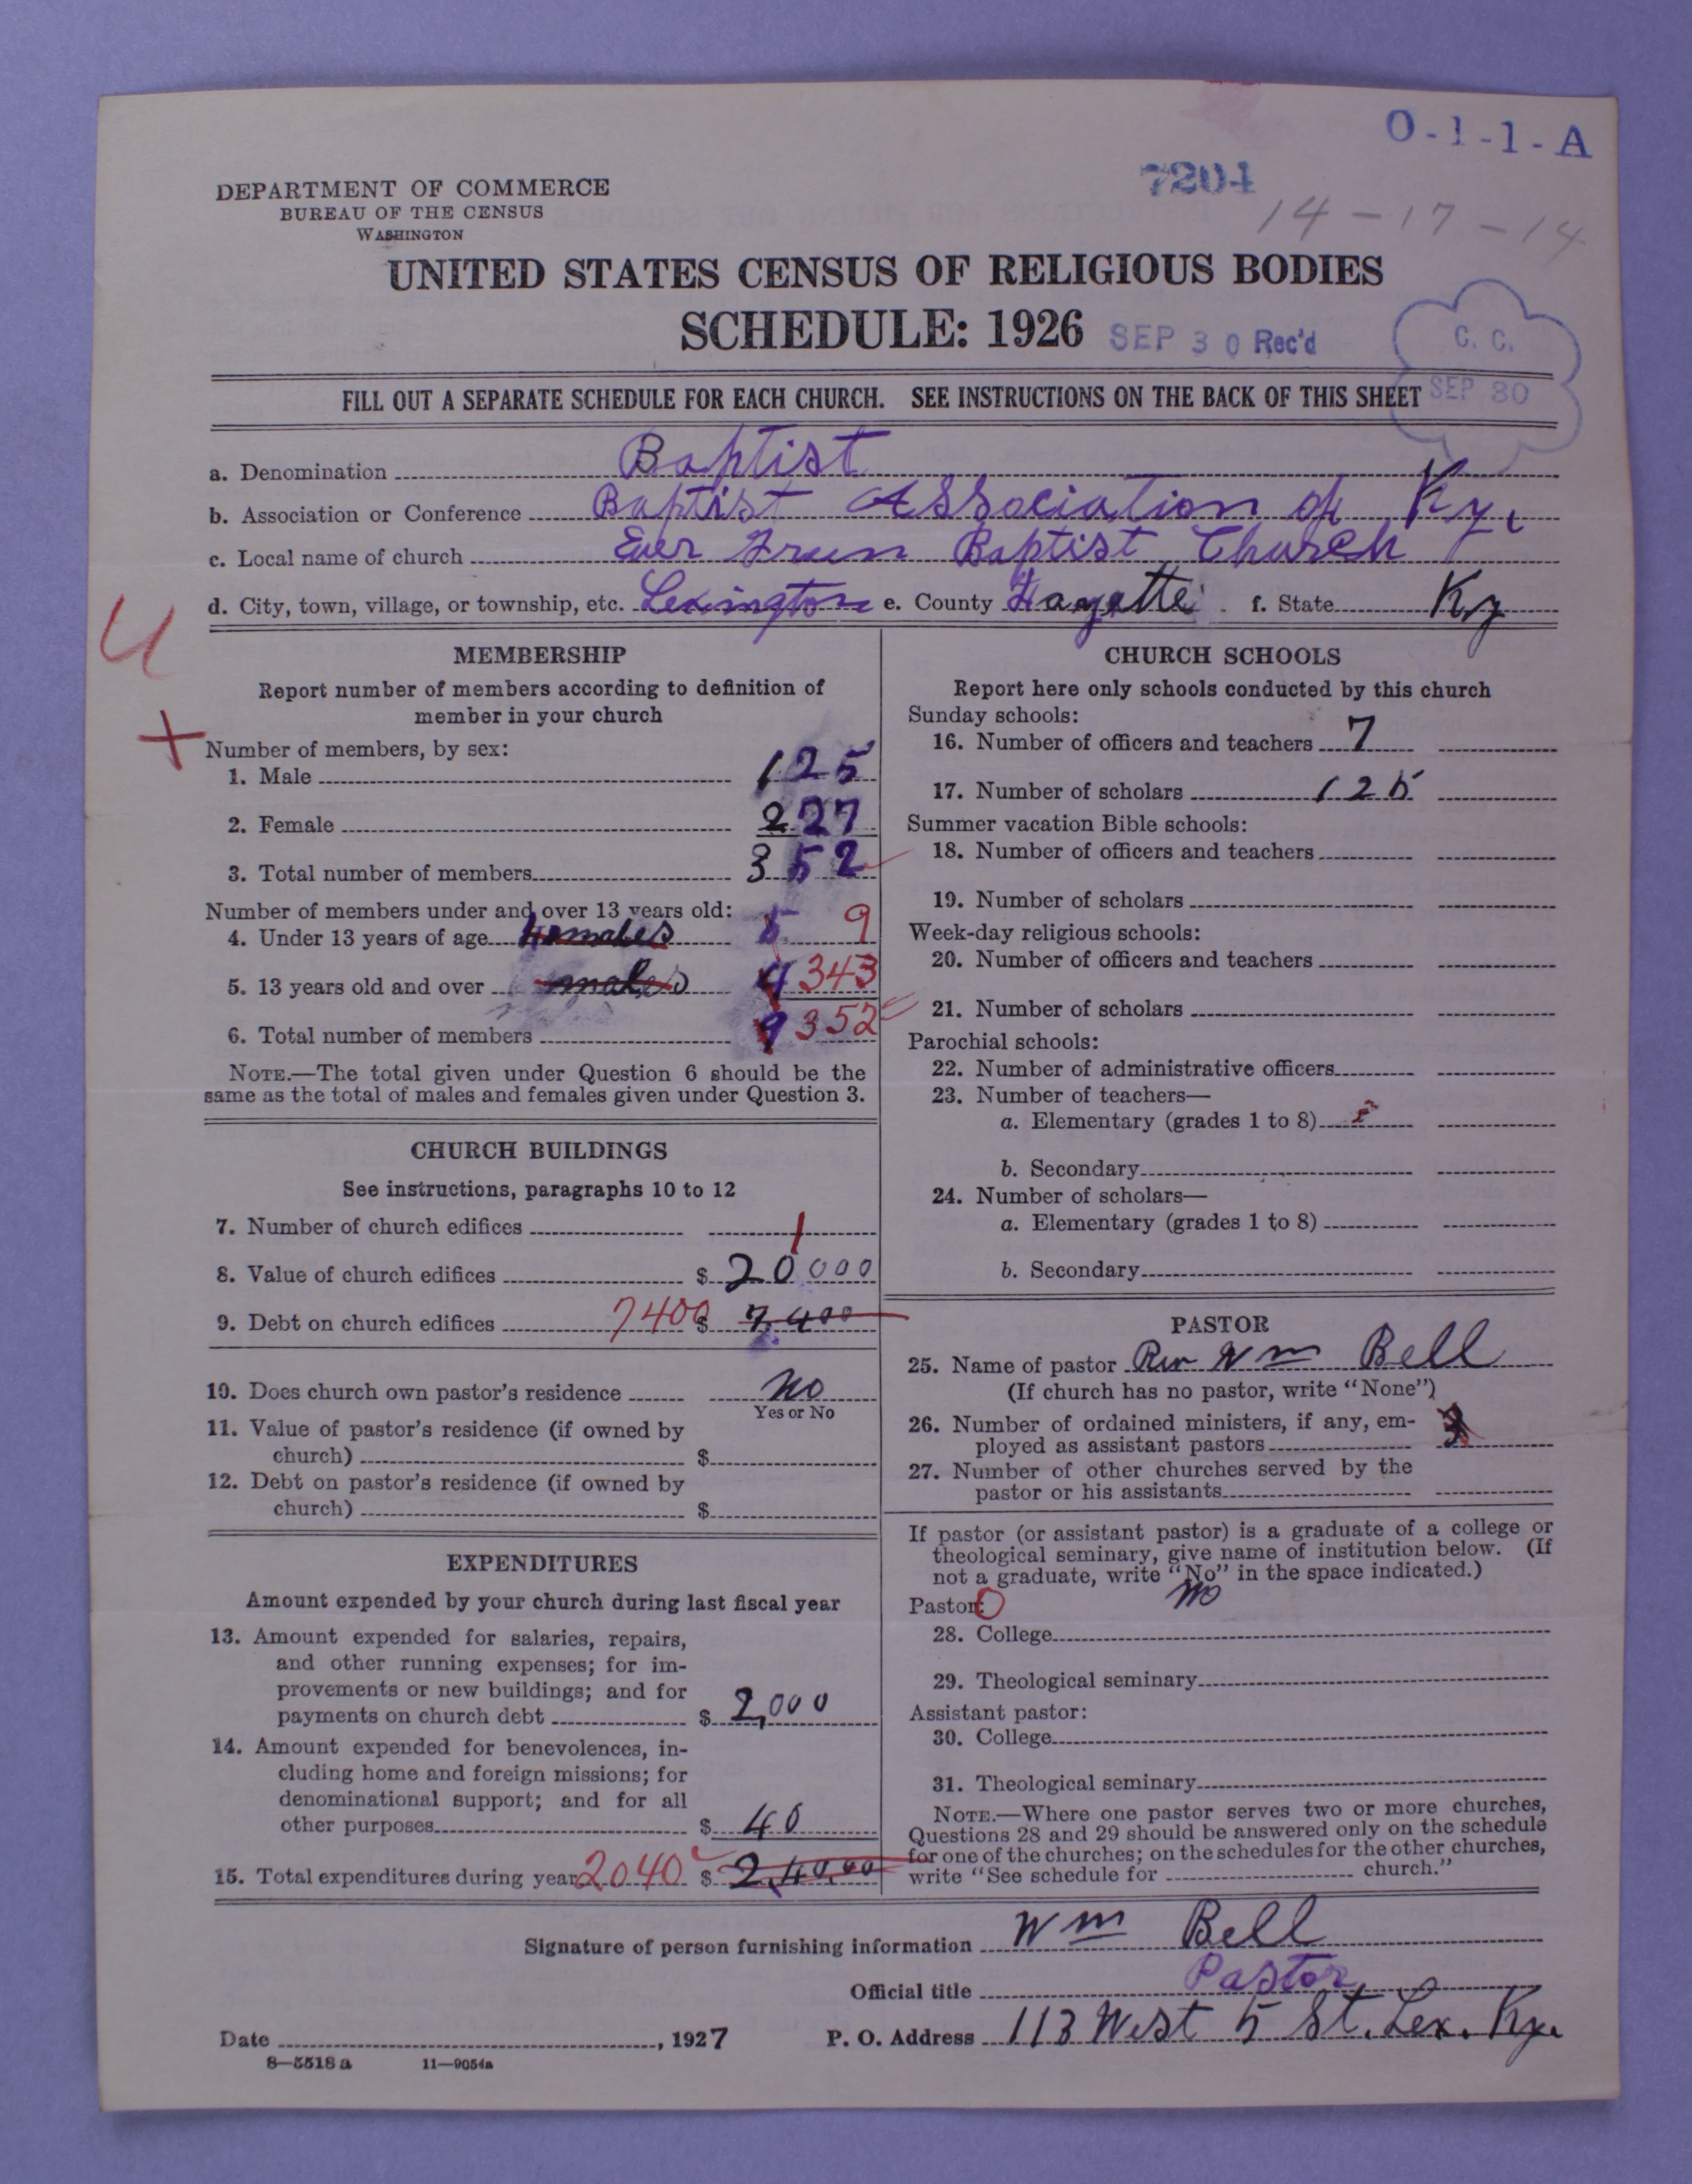 O-1-1-A
7204
14-17-14
DEPARTMENT OF COMMERCE
BUREAU OF THE CENSUS
WASHINGTON
UNITED STATES CENSUS OF RELIGIOUS BODIES
SCHEDULE: 1926 SEP 30 Rec'd
C. C.
SEP 30
FILL OUT A SEPARATE SCHEDULE FOR EACH CHURCH. SEE INSTRUCTIONS ON THE BACK OF THIS SHEET
a. Denomination Baptist
b. Association or Conference Baptist Association of Ky.
c. Local name of church Ever Green Baptist Church
d. City, town, village, or township, etc. Lexington e. County Fayette f. State Ky
U
+
MEMBERSHIP
Report number of members according to definition of
member in your church
Number of members, by sex:
1. Male 125
2. Female 227
3. Total number of members 352
Number of members under and over 13 years old:
4. Under 13 years of age 5 9
5. 13 years old and over males 4 343
6. Total number of members 9 352
NOTE.—The total given under Question 6 should be the
same as the total of males and females given under Question 3.
CHURCH BUILDINGS
See instructions, paragraphs 10 to 12
7. Number of church edifices 1
8. Value of church edifices $ 20000
9. Debt on church edifices 7400 $ 7,400
10. Does church own pastor's residence no
Yes or No
11. Value of pastor's residence (if owned by
church) $
12. Debt on pastor's residence (if owned by
church) $
EXPENDITURES
Amount expended by your church during last fiscal year
13. Amount expended for salaries, repairs,
and other running expenses; for im-
provements or new buildings; and for
payments on church debt $ 2,000
14. Amount expended for benevolences, in-
cluding home and foreign missions; for
denominational support; and for all
other purposes $ 40
15. Total expenditures during year 2040 $ 2,40.00
CHURCH SCHOOLS
Report here only schools conducted by this church
Sunday schools:
16. Number of officers and teachers 7
17. Number of scholars 125
Summer vacation Bible schools:
18. Number of officers and teachers
19. Number of scholars
Week-day religious schools:
20. Number of officers and teachers
21. Number of scholars
Parochial schools:
22. Number of administrative officers
23. Number of teachers—
a. Elementary (grades 1 to 8)
b. Secondary
24. Number of scholars—
a. Elementary (grades 1 to 8)
b. Secondary
PASTOR
25. Name of pastor Rev Wm Bell
(If church has no pastor, write "None")
26. Number of ordained ministers, if any, em-
ployed as assistant pastors
27. Number of other churches served by the
pastor or his assistants
If pastor (or assistant pastor) is a graduate of a college or
theological seminary, give name of institution below. (If
not a graduate, write "No" in the space indicated.)
Pastor: 0 no
28. College
29. Theological seminary
Assistant pastor:
30. College
31. Theological seminary
NOTE.—Where one pastor serves two or more churches,
Questions 28 and 29 should be answered only on the schedule
for one of the churches; on the schedules for the other churches,
write "See schedule for church."
Signature of person furnishing information Wm Bell
Official title Pastor
Date , 1927 P. O. Address 113 West 5 St. Lex. Ky.
8—5518 a 11—9054a